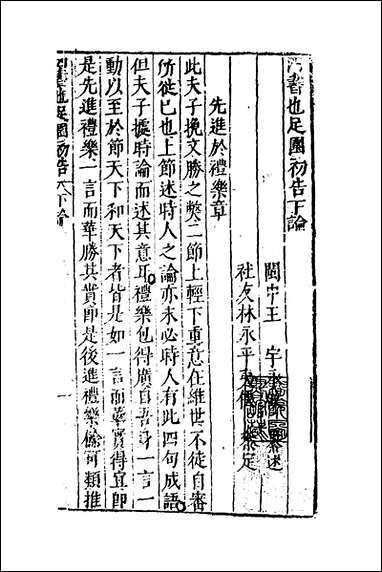 四書也足園初告下論
閩中王 宇 述
社友林永平 足
先進於禮樂章
此夫子挽文勝之獘二節上輕下重意在維世不徒自審
所從已也上節述時人之論亦未必時人有此四句成語
但夫子據時論而述其意耳禮樂包得廣自吾身一言一
動以至於節天下和天下者皆是如一言而華實得宜即
是先進禮樂一言而華勝其實即是後進禮樂餘可類推
四書也足園初告 下論